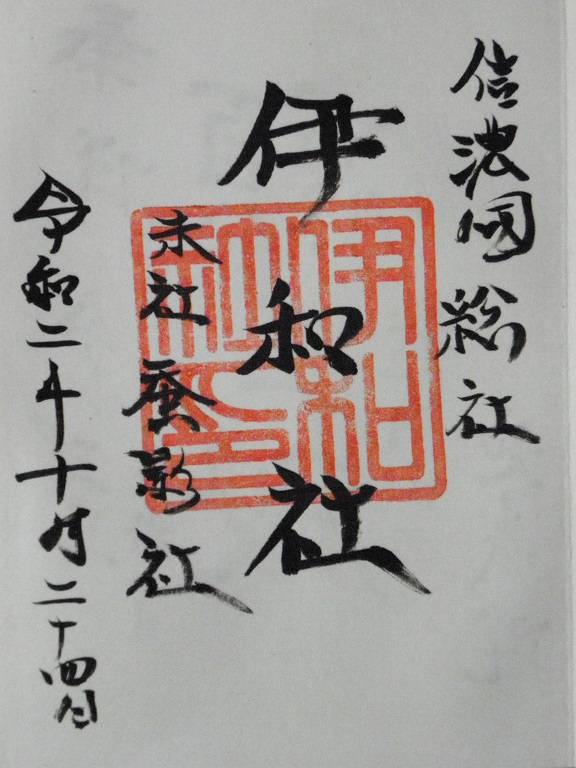 信濃國総社
伊和社
末社 蚕影社
令和二年十月二十四日
伊和神社印